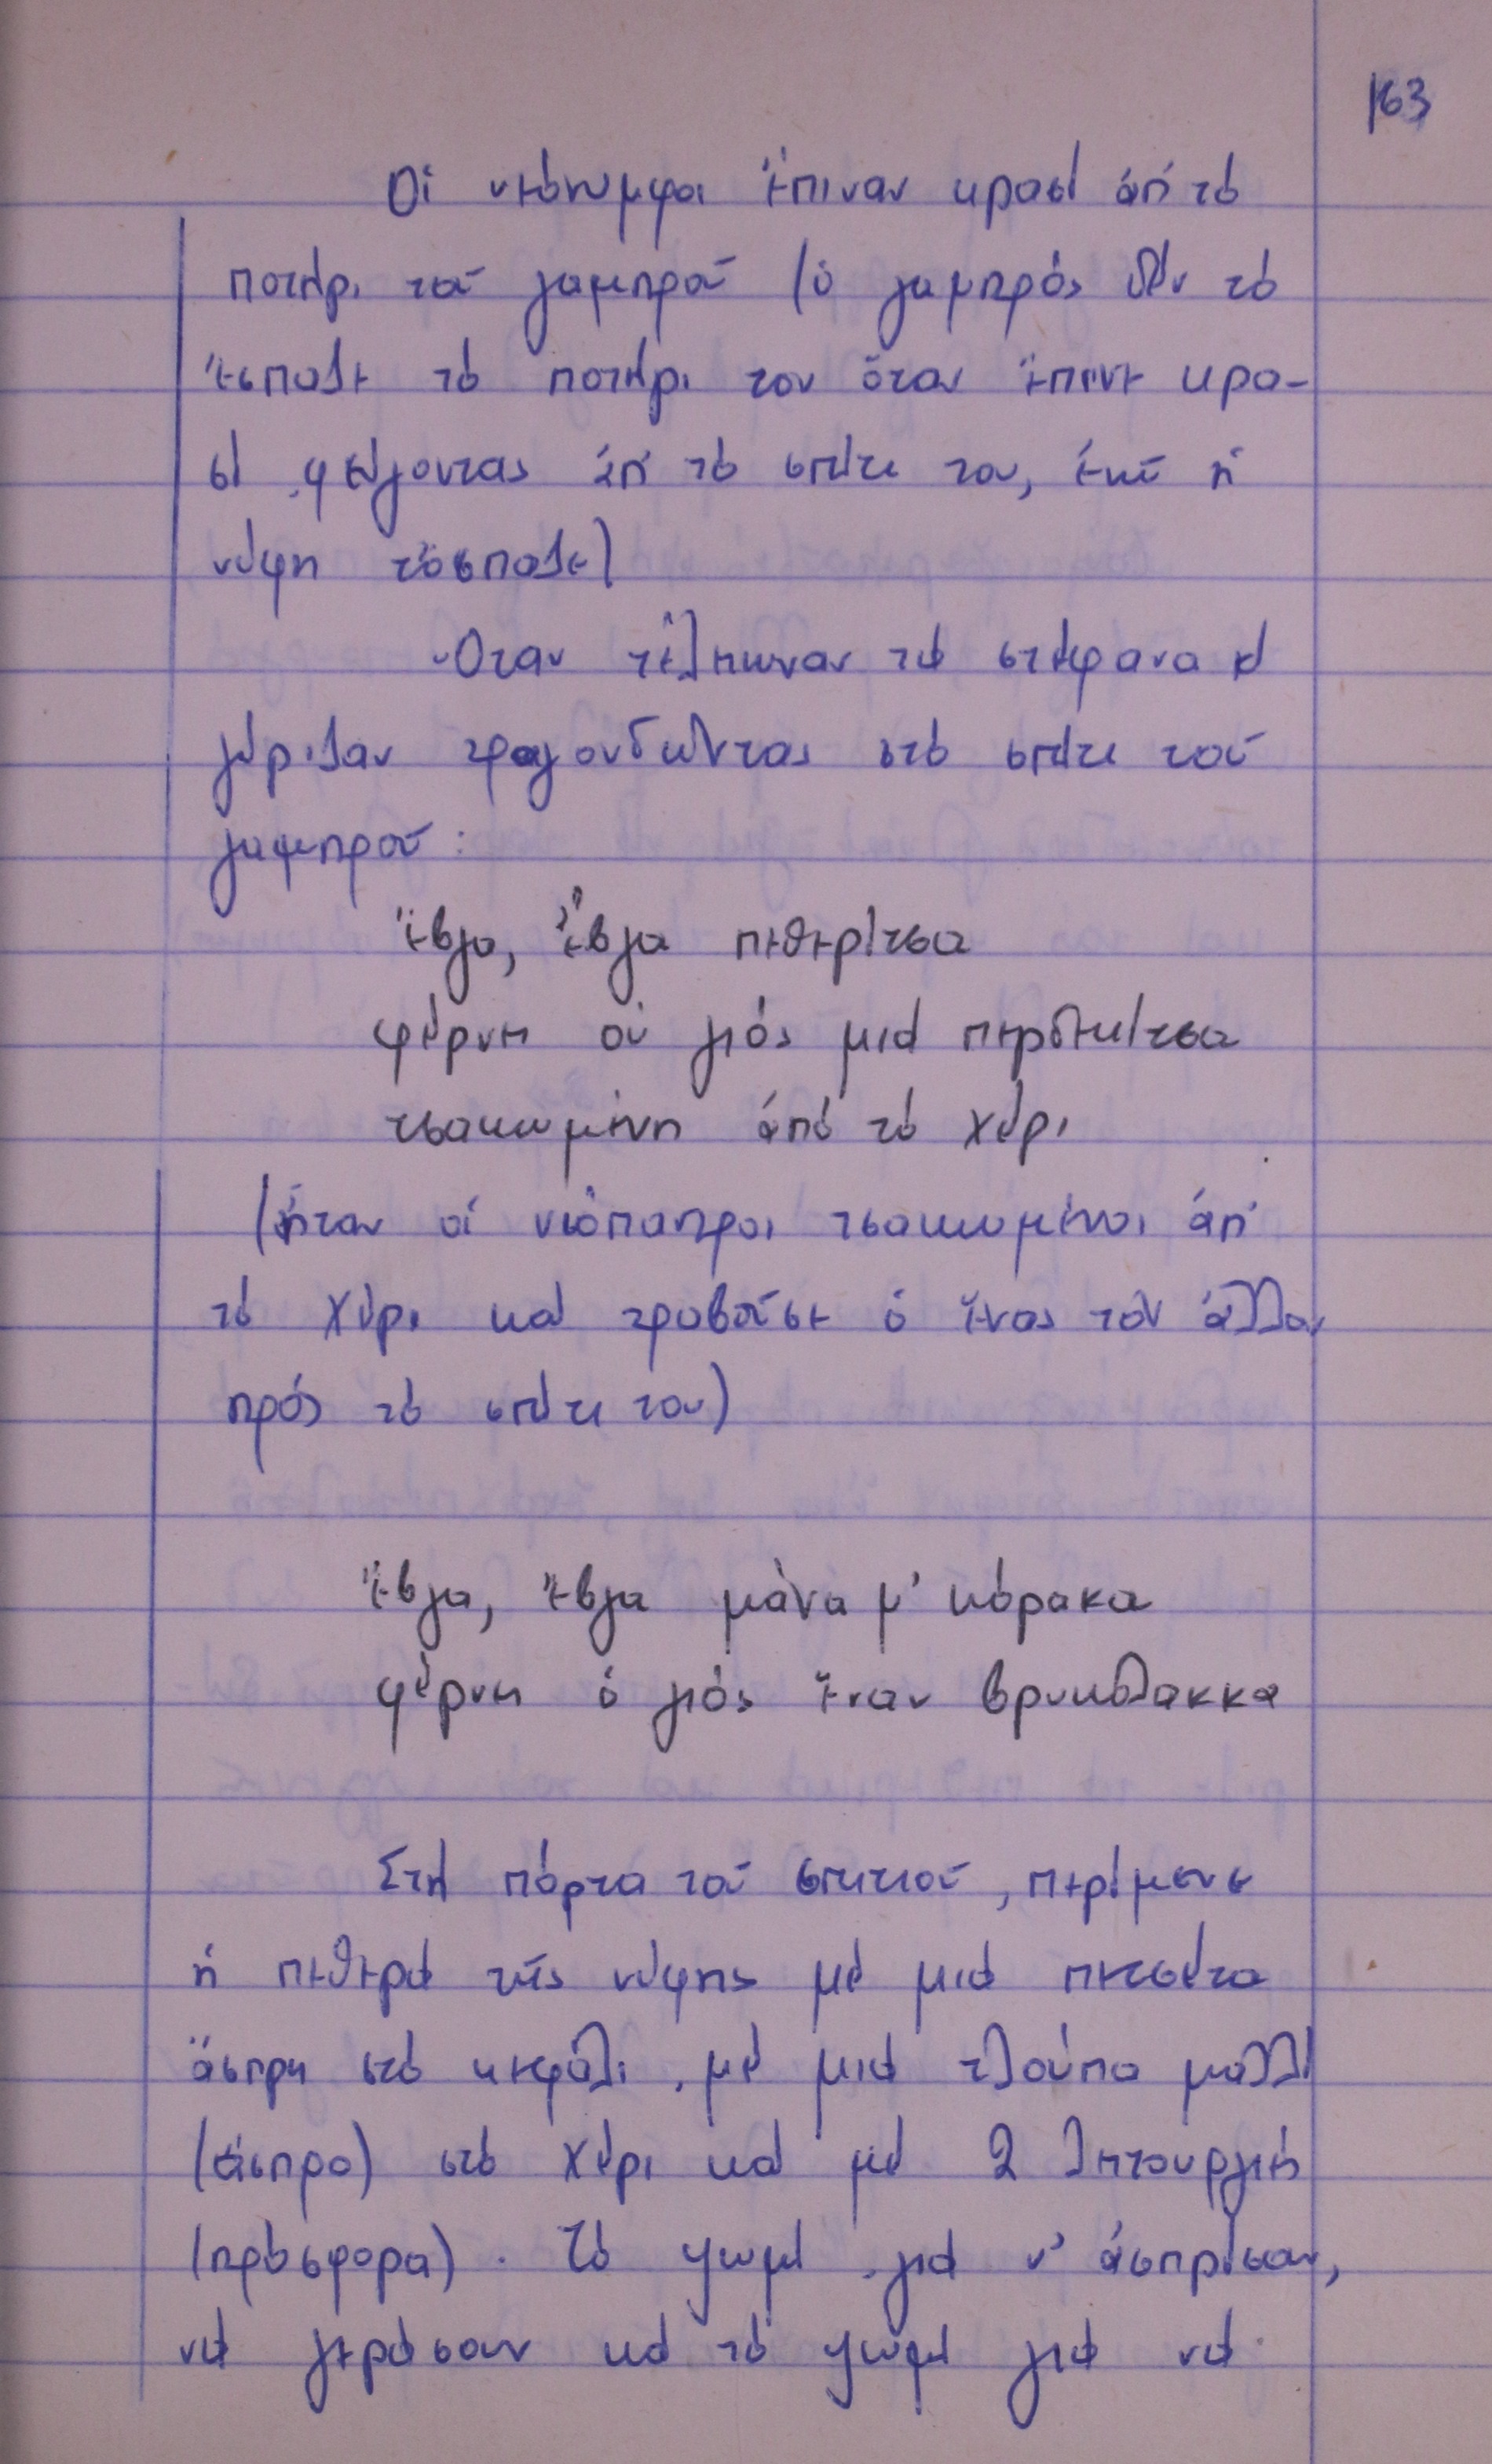 163
Οἱ νεόνυμφοι ἔπιναν κρασί ἀπ' τό
ποτήρι τοῦ γαμπροῦ (ὁ γαμπρός δέν τό
ἔσπαζε τό ποτήρι του ὅταν ἔπινε κρα-
σί φεύγοντας ἀπ' τό σπίτι του, ἐνῶ ἡ
νύφη τὄσπαζε)
Ὅταν τέλειωναν τά στέφανα κι
γύριζαν τραγουδῶντας στό σπίτι τοῦ
γαμπροῦ:
Ἔβγα, ἔβγα πεθερίτσα
φέρνει οὑ γιός μιά περδικίτσα
τσακωμένη ἀπό τό χέρι
(ἦταν οἱ νιόπαντροι τσακωμένοι ἀπ'
τό χέρι καί τραβοῦσε ὁ ἕνας τόν ἄλλον
πρός τό σπίτι του)
Ἔβγα, ἔβγα μάνα μ' κόρακα
φέρνει ὁ γιός ἕναν βρυκόλακκα
Στή πόρτα τοῦ σπιτιοῦ, περίμενε
ἡ πεθερά τῆς νύφης μέ μιά πετσέτα
ἄσπρη στό κεφάλι, μέ μιά τλούπα μαλλί
(ἄσπρο) στό χέρι καί μέ 2 λειτουργιές
(πρόσφορα). Τό ψωμί γιά ν' ἀσπρίσουν,
νά γεράσουν καί τό ψωμί γιά νά